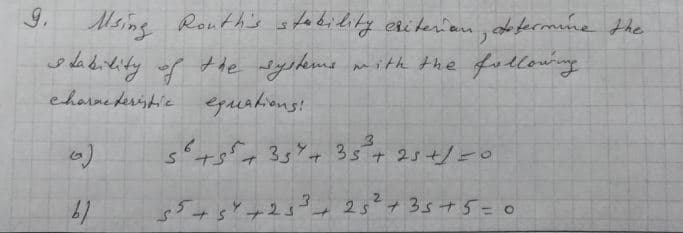 9. Using Routh's stability criterion, determine the
stability of the systems with the following
characteristic equations:
a) s⁶+s⁵+3s⁴+3s³+2s+1=0
b) s⁵+s⁴+2s³+2s²+3s+5=0